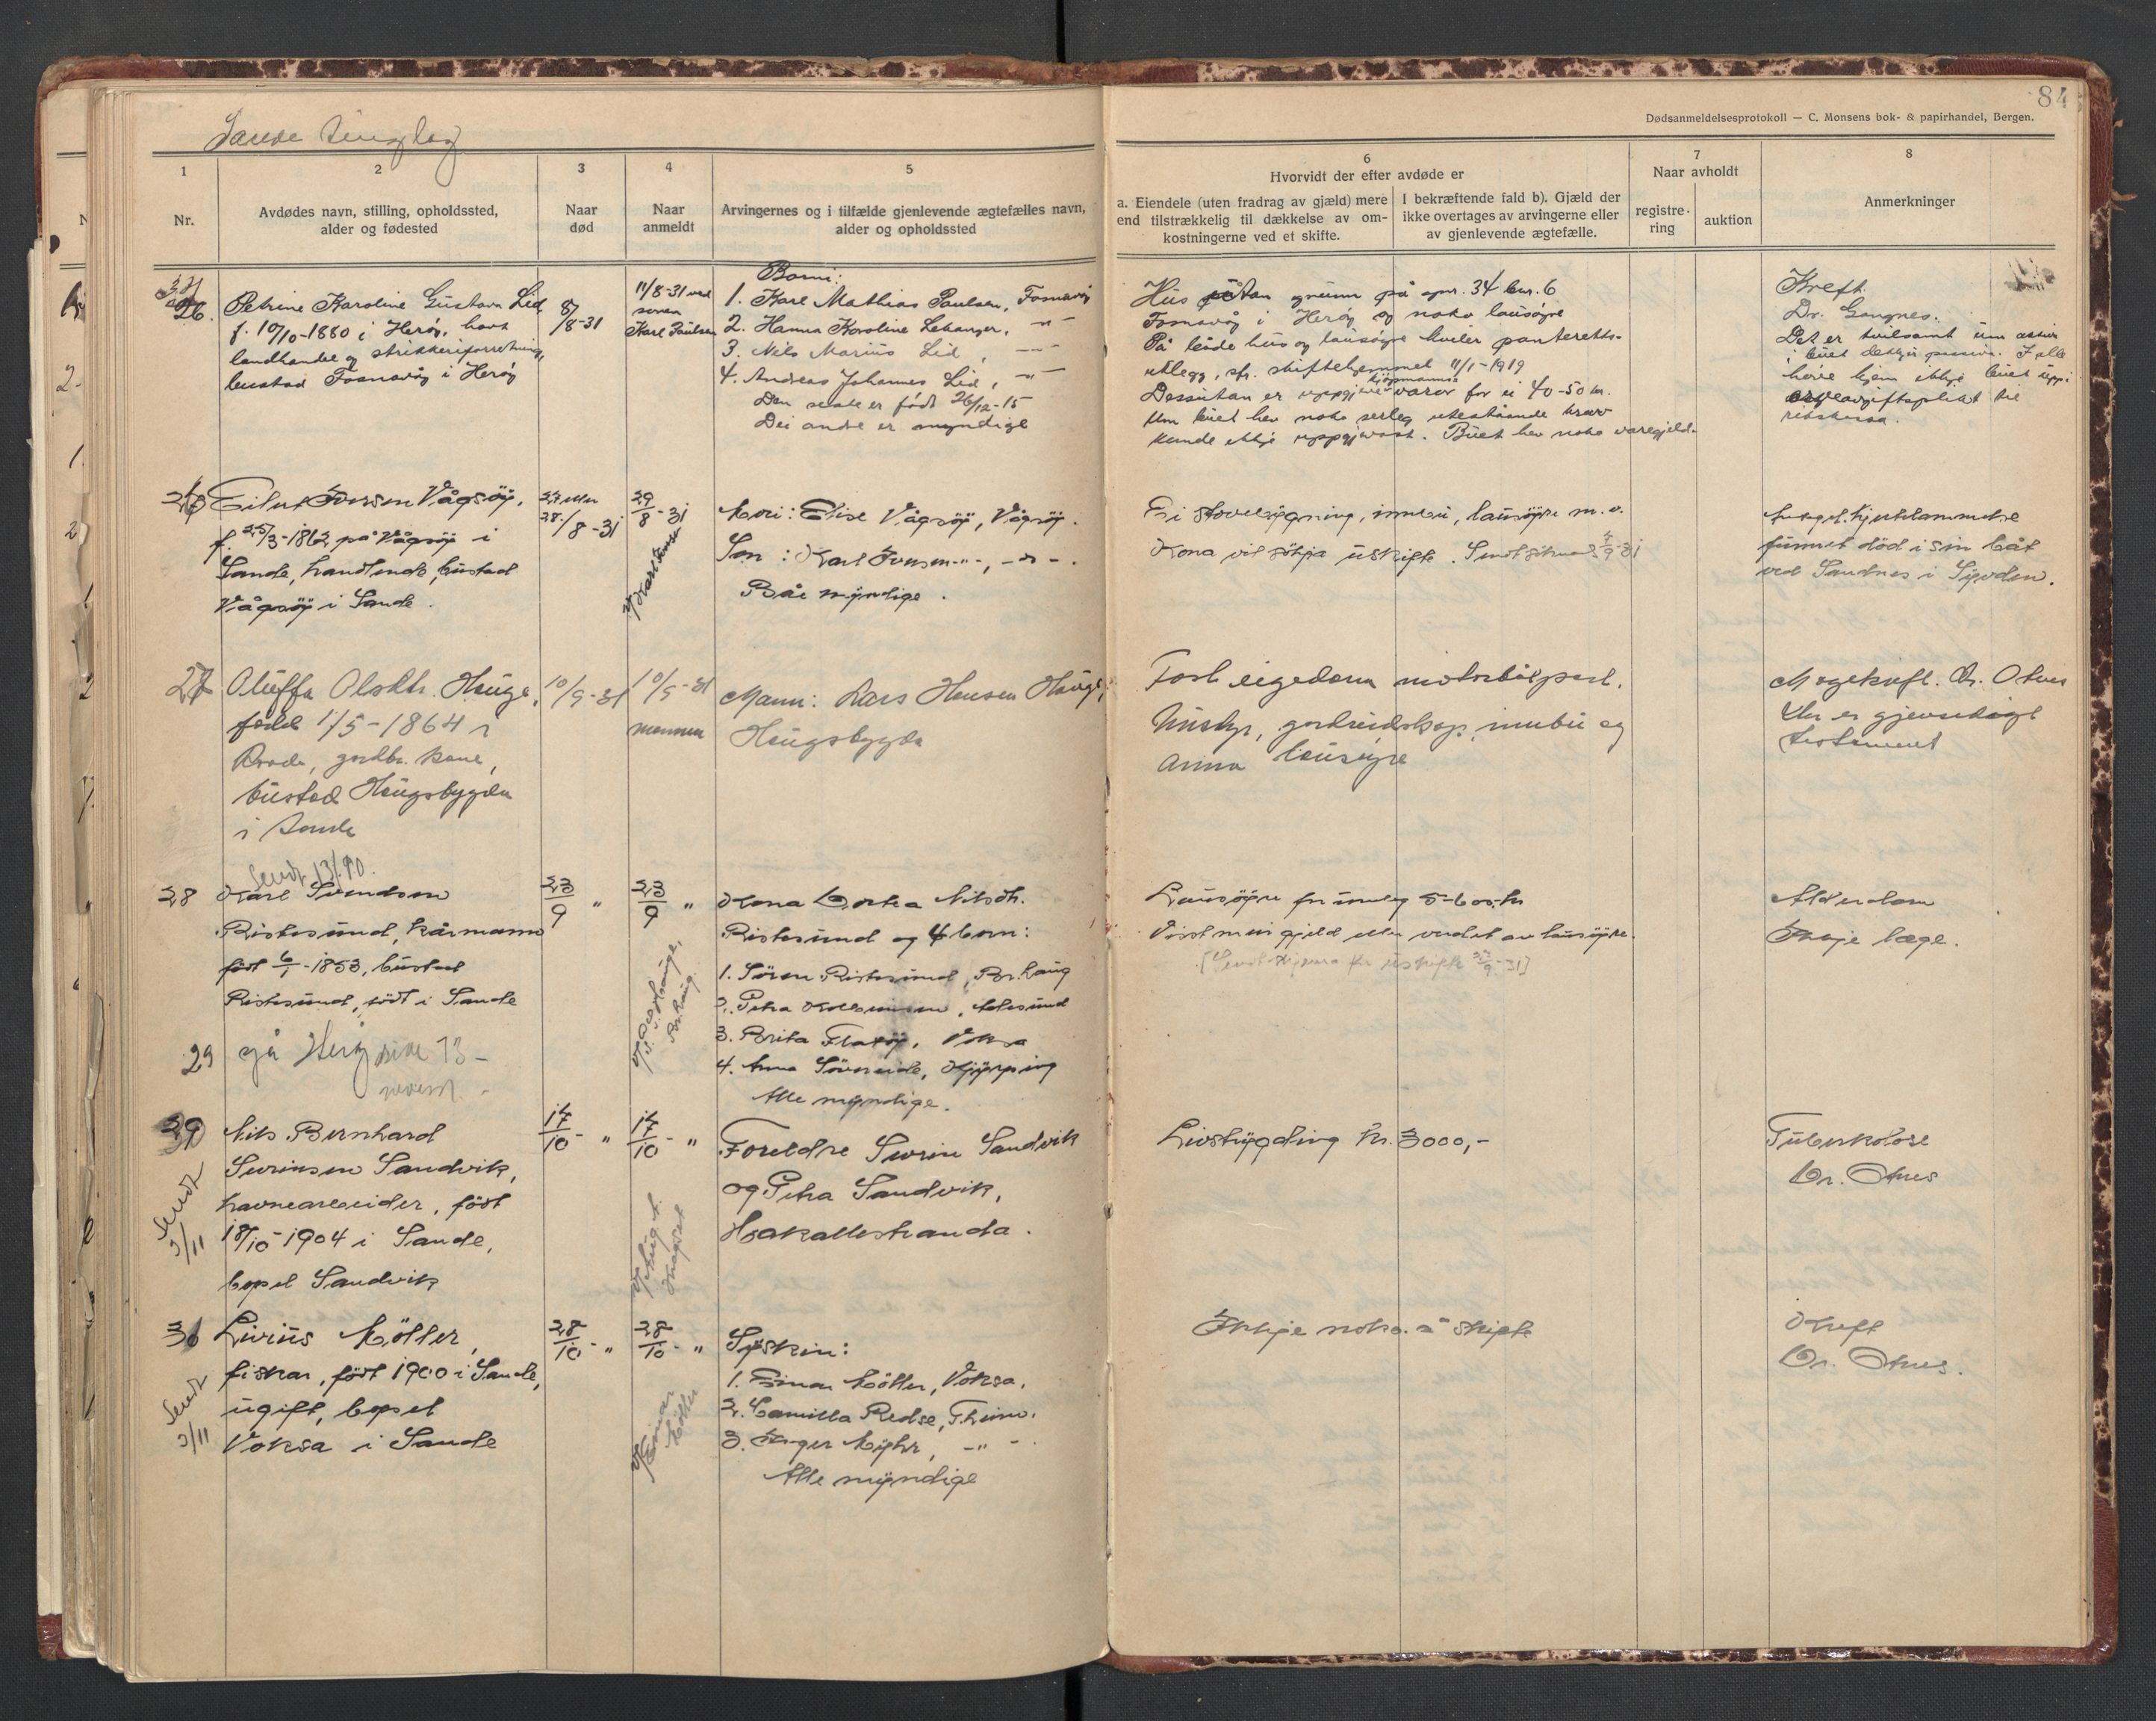 84
Dødsanmeldelsesprotokoll — C. Monsens bok- & papirhandel, Bergen.
Sande tinglag
1
Nr.
2
Avdødes navn, stilling, opholdssted,
alder og fødested
3
Naar
død
4
Naar
anmeldt
5
Arvingernes og i tilfælde gjenlevende ægtefælles navn,
alder og opholdssted
6
Hvorvidt der efter avdøde er
a. Eiendele (uten fradrag av gjæld) mere
end tilstrækkelig til dækkelse av om-
kostningerne ved et skifte.
I bekræftende fald b). Gjæld der
ikke overtages av arvingerne eller
av gjenlevende ægtefælle.
7
Naar avholdt
registre-
ring
auktion
8
Anmerkninger
26.
Petrine Karoline Gustava Lid
f. 10/10-1880 i Herøy, havt
landhandel og strikkeriforretning,
bustad Fosnavåg i Herøy
8/8-31
11/8-31 ved
sonen
Karl Paulsen
Borni:
1. Karl Mathias Paulsen, Fosnavåg
2. Hanna Karoline Lebanger, -"-
3. Nils Marius Lid, -"-
4. Andreas Johannes Lid, -"-
Den siste er født 26/12-15
Dei andre er myndige
Hus utan grunn på gnr. 34 bnr. 6
Fosnavåg i Herøy og noko lausøyre
På både hus og lausøyre kviler panteretts-
utlegg, sfr. skifteheimmel 11/1-1919
Dessutan er uppgjeve kjøpmanns varor for ei 40-50 kr.
Um buet hev noko serleg utestående krav
kunde ikkje uppgjevast. Buet hev noko varegjeld.
Kreft.
Dr. Gangnes.
Det er tvilsamt um aktiva
i buet dekkjer passiva. I alle
høve kjem ikkje buet uppi
arveavgiftsplikt til
rikskassa.
Eilert Iversen Vågsøy,
f. 25/3-1862 på Vågsøy i
Sande, handlande, bustad
Vågsøy i Sande.
27 eller
28./8-31
29/8-31
v/Karl Iversen
Mori: Elise Vågsøy, Vågsøy.
Son: Karl Iversen -"-, -"-.
Båe myndige.
Ei stovebygning, innbu, lausøyre m.v.
Kona vil søkja uskifte. Sendt skjema 4/9-31
funnet død i sin båt
ved Sandnes i Syvden.
27
Oluffa Olsdtr. Hauge,
fødd 1/5-1864 i
gardbr. kone,
bustad Haugsbygda
i Sande
10/9-31
10/9-31
mannen
Mann: Lars Hansen Hauge,
Haugsbygda
Fast eigedom motorbåtpart.
husdyr, gardreidskap, innbu og
anna lausøyre
Magekreft. Dr. Otnes
Der er gjensidigt
testament
Sendt 13/10.
28
Karl Svendsen
Ristesund, kårmann
født 6/1-1853, bustad
Ristesund, født i Sande
23/9 "
23/9 "
Kona Dortea Nilsdtr.
Ristesund og 4 born:
1. Søren Ristesund, Br.haug
2. Petra Kolbeinsen, Ålesund
3. Brita Flatøy, Voksa
4. Anna Sørenseide, Kjørping
Alle myndige.
Lausøyre for innleg 5-600 kr
Visst meir gjeld eller verdet av lausøyre.
[Sendt skjema for uskifte 23/9-31]
Alderdom
Ikkje læge.
29
gå Herøy sine 13-
29
Nils Bernhard
Severinsen Sandvik,
havnearbeider, født
18/10-1904 i Sande,
bopel Sandvik
Sendt
3/11
17/10- "
17/10- "
Foreldre Severin Sandvik
og Petra Sandvik,
Hakallestranda.
Livstrygding kr. 3000,-
Tuberkolose
Dr. Otnes
30
Livius Møller,
fiskar, født 1900 i Sande,
ugift, bopel
Voksa i Sande
Sendt
3/11
28/10- "
28/10- "
v/Einar
Møller
Syskin:
1. Einar Møller, Voksa.
2. Camilla Redse, Thime.
3. Inger Myhr, -"-
Alle myndige
Ikkje noko å skifte
Kreft
Dr. Otnes.